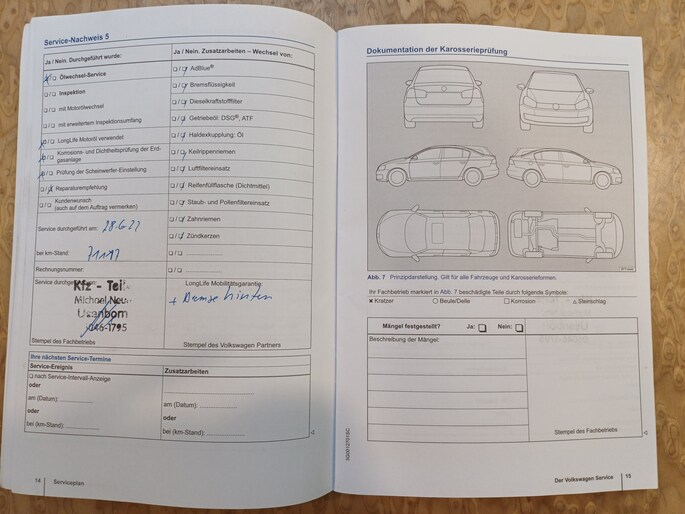 Service-Nachweis 5
Ja / Nein. Durchgeführt wurde:
Ölwechsel-Service
Inspektion
mit Motorölwechsel
mit erweitertem Inspektionsumfang
LongLife Motoröl verwendet
Korrosions- und Dichtheitsprüfung der Erd-
gasanlage
Prüfung der Scheinwerfer-Einstellung
Reparaturempfehlung
Kundenwunsch
(auch auf dem Auftrag vermerken)
Service durchgeführt am: 28.6.22
bei km-Stand: 71117
Rechnungsnummer:
Service durchgeführt
Kfz - Teil
Michael Neu
Usenborn
046-1795
Stempel des Fachbetriebs
Ja / Nein. Zusatzarbeiten – Wechsel von:
AdBlue®
Bremsflüssigkeit
Dieselkraftstofffilter
Getriebeöl: DSG®, ATF
Haldexkupplung: Öl
Keilrippenriemen
Luftfiltereinsatz
Reifenfüllflasche (Dichtmittel)
Staub- und Pollenfiltereinsatz
Zahnriemen
Zündkerzen
LongLife Mobilitätsgarantie:
+ Bremse hinten
Stempel des Volkswagen Partners
Ihre nächsten Service-Termine
Service-Ereignis
nach Service-Intervall-Anzeige
oder
am (Datum):
oder
bei (km-Stand):
Zusatzarbeiten
am (Datum):
oder
bei (km-Stand):
14 Serviceplan
Dokumentation der Karosserieprüfung
Abb. 7 Prinzipdarstellung. Gilt für alle Fahrzeuge und Karosserieformen.
Ihr Fachbetrieb markiert in Abb. 7 beschädigte Teile durch folgende Symbole:
× Kratzer ○ Beule/Delle □ Korrosion △ Steinschlag
Mängel festgestellt? Ja: Nein:
Beschreibung der Mängel:
Stempel des Fachbetriebs
Der Volkswagen Service 15